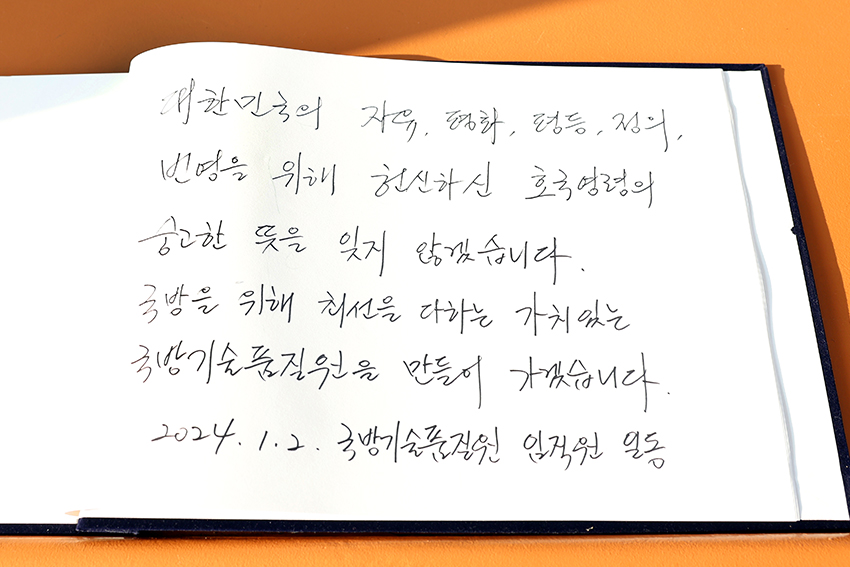 대한민국의 자유, 평화, 평등, 정의,
번영을 위해 헌신하신 호국영령의
숭고한 뜻을 잊지 않겠습니다.
국방을 위해 최선을 다하는 가치있는
국방기술품질원을 만들어 가겠습니다.
2024. 1. 2. 국방기술품질원 임직원 일동